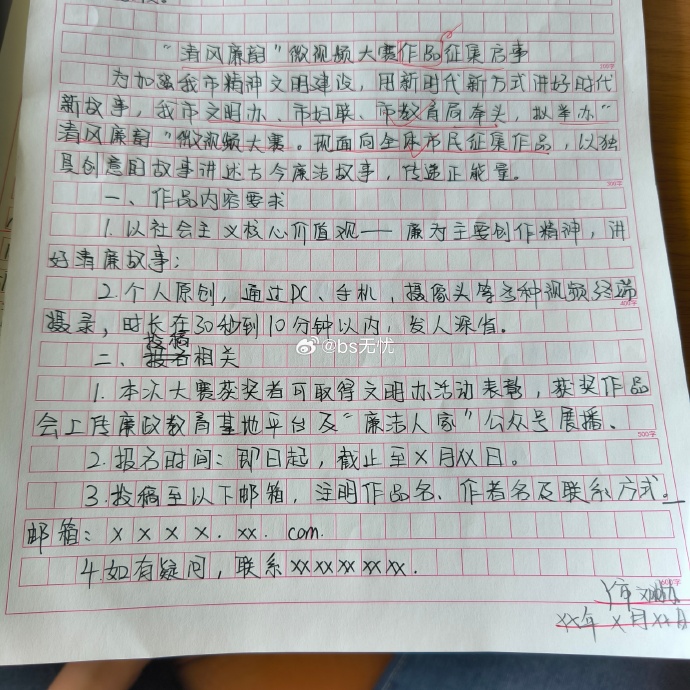 "清风廉韵"微视频大赛作品征集启事
100字
为加强我市精神文明建设,用新时代新方式讲好时代
新故事,我市文明办、市妇联、市教育局牵头,拟举办"
清风廉韵"微视频大赛。现面向全体市民征集作品,以独
具创意的故事讲述古今廉洁故事,传递正能量。
一、作品内容要求
1.以社会主义核心价值观——廉为主要创作精神,讲
好清廉故事;
2.个人原创,通过PC、手机,摄像头等各种视频终端
400字
摄录,时长在30秒到10分钟以内,发人深省。
投稿
二、报名相关
@bs无忧
1.本次大赛获奖者可取得文明办活动表彰,获奖作品
会上传廉政教育基地平台及"廉洁人家"公众号展播、
500字
2.报名时间:即日起,截止至X月XX日。
3.投稿至以下邮箱,注明作品名、作者名及联系方式。
邮箱:xxxx.xx.com.
4.如有疑问,联系xxxxxx.
600字
市文明办
xx年x月xx日